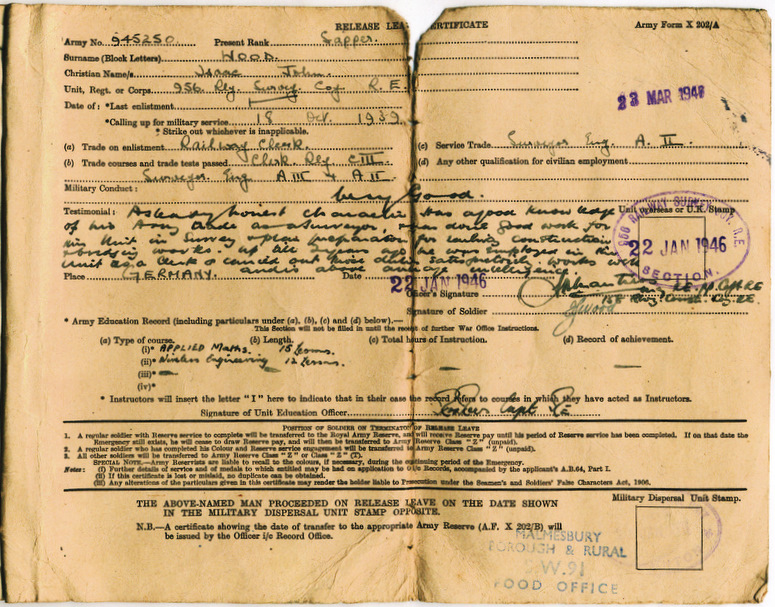 RELEASE LEAVE CERTIFICATE Army Form X 202/A
Army No. 945250. Present Rank Sapper.
Surname (Block Letters) WOOD.
Christian Name/s Isaac John.
Unit, Regt. or Corps. 956 Rly. Survey Coy R.E.
23 MAR 1946
Date of : *Last enlistment
*Calling up for military service 18 Oct. 1939.
* Strike out whichever is inapplicable.
(a) Trade on enlistment Railway Clerk. (c) Service Trade Surveyor Eng. A. II.
(b) Trade courses and trade tests passed Clerk Rly CIII (d) Any other qualification for civilian employment
Surveyor Eng AIII & AII
Military Conduct : Very Good.
Testimonial : A steady honest character. Has a good knowledge Unit overseas or U.K. Stamp
of his Army trade as a Surveyor, has done good work for
his Unit in Survey & plan preparation for railway construction
Unit as a Clerk & carried out those duties satisfactorily, works well
and is above average intelligence.
956 RAILWAY SURVEY COY. R.E.
22 JAN 1946
SECTION.
Place GERMANY. Date 22 JAN 1946
Officer's Signature
Signature of Soldier IJWood
* Army Education Record (including particulars under (a), (b), (c) and (d) below).—
This Section will not be filled in until the receipt of further War Office Instructions.
(a) Type of course. (b) Length. (c) Total hours of Instruction. (d) Record of achievement.
(i)* APPLIED Maths. 15 Lessons.
(ii)* Wireless Engineering 12 Lessons.
(iii)* —
(iv)*
* Instructors will insert the letter "I" here to indicate that in their case the record refers to courses in which they have acted as Instructors.
Signature of Unit Education Officer Capt RE
POSITION OF SOLDIER ON TERMINATION OF RELEASE LEAVE
1. A regular soldier with Reserve service to complete will be transferred to the Royal Army Reserve, and will receive Reserve pay until his period of Reserve service has been completed. If on that date the
Emergency still exists, he will cease to draw Reserve pay, and will then be transferred to Army Reserve Class "Z" (unpaid).
2. A regular soldier who has completed his Colour and Reserve service engagement will be transferred to Army Reserve Class "Z" (unpaid).
3. All other soldiers will be transferred to Army Reserve Class "Z" or Class "Z" (T).
SPECIAL NOTE.—Army Reservists are liable to recall to the colours, if necessary, during the continuing period of the Emergency.
Notes : (i) Further details of service and of medals to which entitled may be had on application to i/c Records, accompanied by the applicant's A.B.64, Part I.
(ii) If this certificate is lost or mislaid, no duplicate can be obtained.
(iii) Any alterations of the particulars given in this certificate may render the holder liable to Prosecution under the Seamen's and Soldiers' False Characters Act, 1906.
THE ABOVE-NAMED MAN PROCEEDED ON RELEASE LEAVE ON THE DATE SHOWN
IN THE MILITARY DISPERSAL UNIT STAMP OPPOSITE.
Military Dispersal Unit Stamp.
N.B.—A certificate showing the date of transfer to the appropriate Army Reserve (A.F. X 202/B) will
be issued by the Officer i/c Record Office.
MALMESBURY
BOROUGH & RURAL
S.W.91
FOOD OFFICE